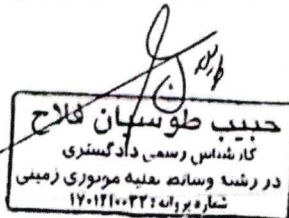 حبیب طوسیان فلاح
کارشناس رسمی دادگستری
در رشته وسائط نقلیه موتوری زمینی
شماره پروانه: ۱۷۰۱۲۱۰۰۳۲